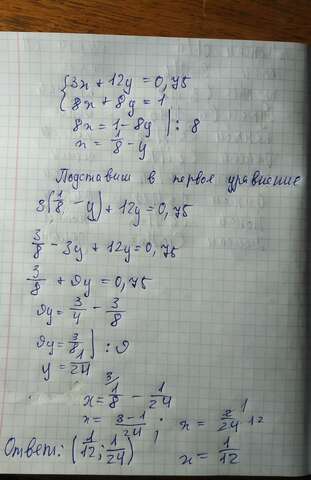 {3x + 12y = 0,75
{8x + 8y = 1
8x = 1 - 8y | : 8
x = 1/8 - y
Подставим в первое уравнение
3(1/8 - y) + 12y = 0,75
3/8 - 3y + 12y = 0,75
3/8 + 9y = 0,75
9y = 3/4 - 3/8
9y = 3/8 | : 9
y = 1/24
x = 1/8 - 1/24
x = 3-1/24 ; x = 2/24 12
Ответ: (1/12; 1/24) x = 1/12